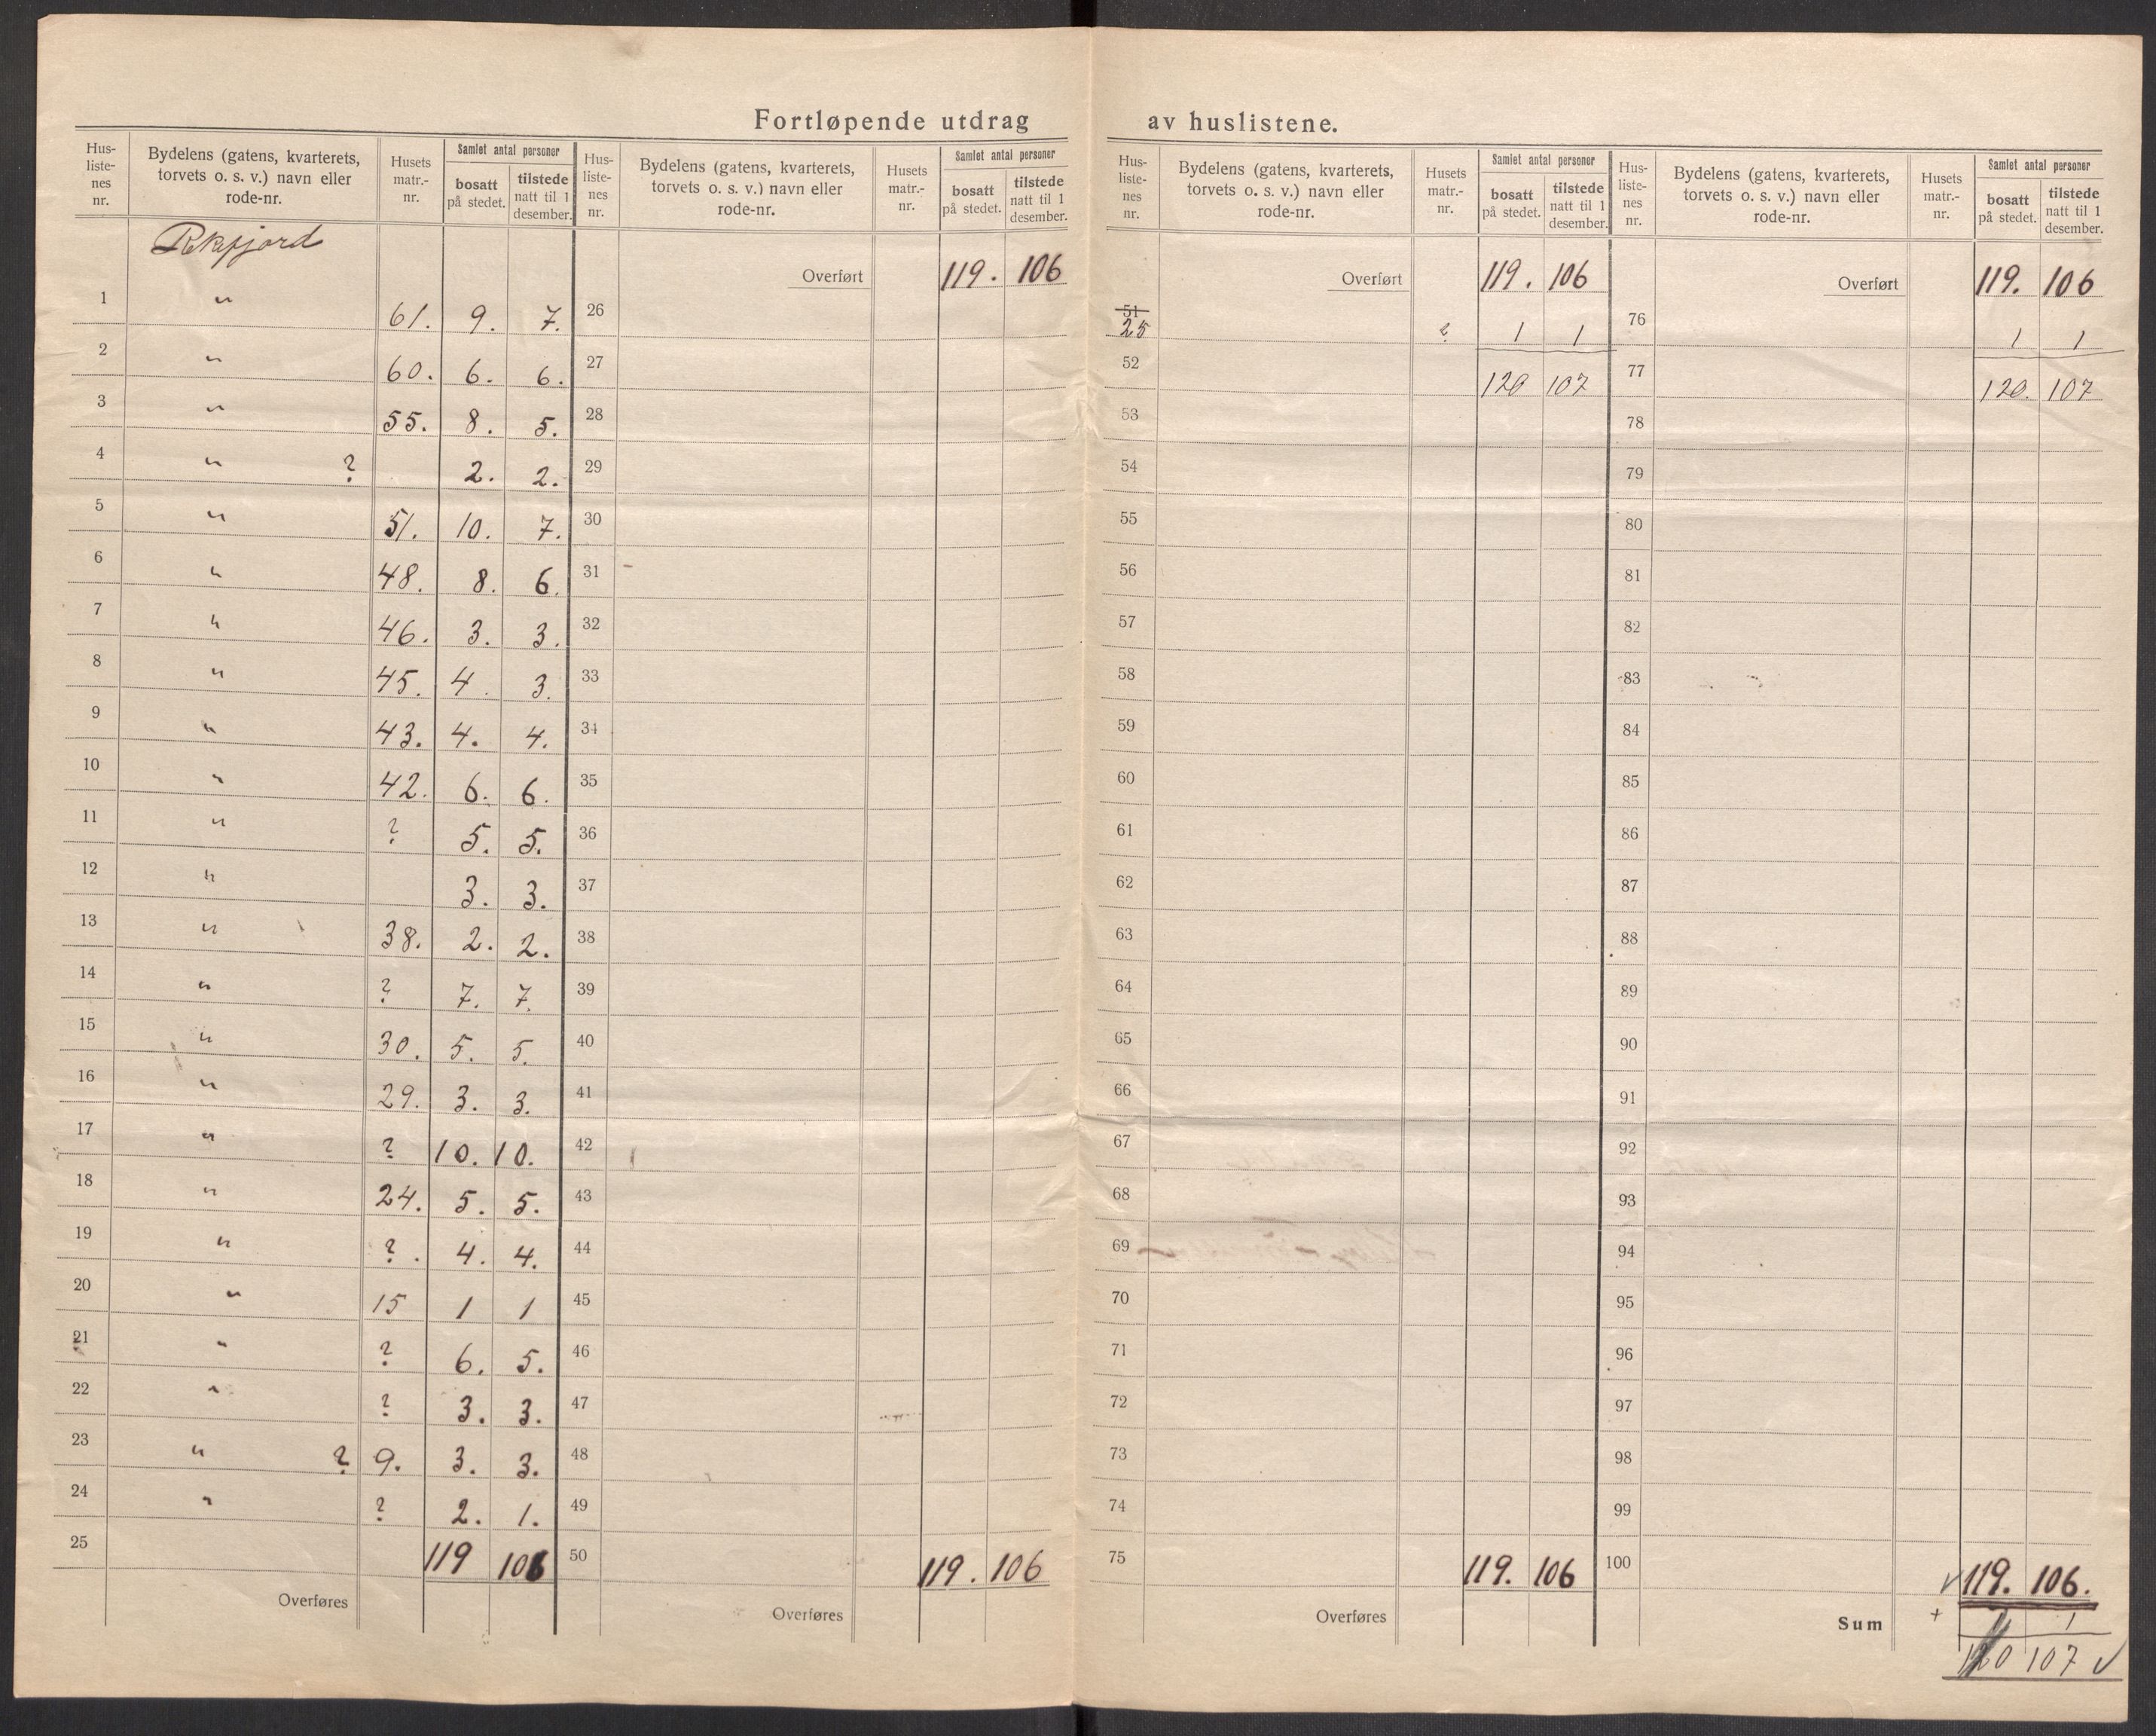 Fortløpende utdrag av huslistene.
Hus-listenes nr. | Bydelens (gatens, kvarterets, torvets o. s. v.) navn eller rode-nr. | Husets matr.-nr. | Samlet antal personer bosatt på stedet. | tilstede natt til 1 desember.
Rekefjord
1 " 61. 9. 7.
2 " 60. 6. 6.
3 " 55. 8. 5.
4 " ? 2. 2.
5 " 51. 10. 7.
6 " 48. 8. 6.
7 " 46. 3. 3.
8 " 45. 4. 3.
9 " 43. 4. 4.
10 " 42. 6. 6.
11 " ? 5. 5.
12 " 3. 3.
13 " 38. 2. 2.
14 " ? 7. 7.
15 " 30. 5. 5.
16 " 29. 3. 3.
17 " ? 10. 10.
18 " 24. 5. 5.
19 " ?. 4. 4.
20 " 15 1 1
21 " ? 6. 5.
22 " ? 3. 3.
23 " ? 9. 3. 3.
24 " ? 2. 1.
25 119 106
Overføres
Hus-listenes nr. | Bydelens (gatens, kvarterets, torvets o. s. v.) navn eller rode-nr. | Husets matr.-nr. | Samlet antal personer bosatt på stedet. | tilstede natt til 1 desember.
Overført 119. 106
26
27
28
29
30
31
32
33
34
35
36
37
38
39
40
41
42
43
44
45
46
47
48
49
50 119. 106
Overføres
Hus-listenes nr. | Bydelens (gatens, kvarterets, torvets o. s. v.) navn eller rode-nr. | Husets matr.-nr. | Samlet antal personer bosatt på stedet. | tilstede natt til 1 desember.
Overført 119. 106
51
25 ? 1 1
52 120 107
53
54
55
56
57
58
59
60
61
62
63
64
65
66
67
68
69
70
71
72
73
74
75 119. 106
Overføres
Hus-listenes nr. | Bydelens (gatens, kvarterets, torvets o. s. v.) navn eller rode-nr. | Husets matr.-nr. | Samlet antal personer bosatt på stedet. | tilstede natt til 1 desember.
Overført 119. 106
76 1 1
77 120. 107
78
79
80
81
82
83
84
85
86
87
88
89
90
91
92
93
94
95
96
97
98
99
100 119. 106.
Sum + 1 1
120 107